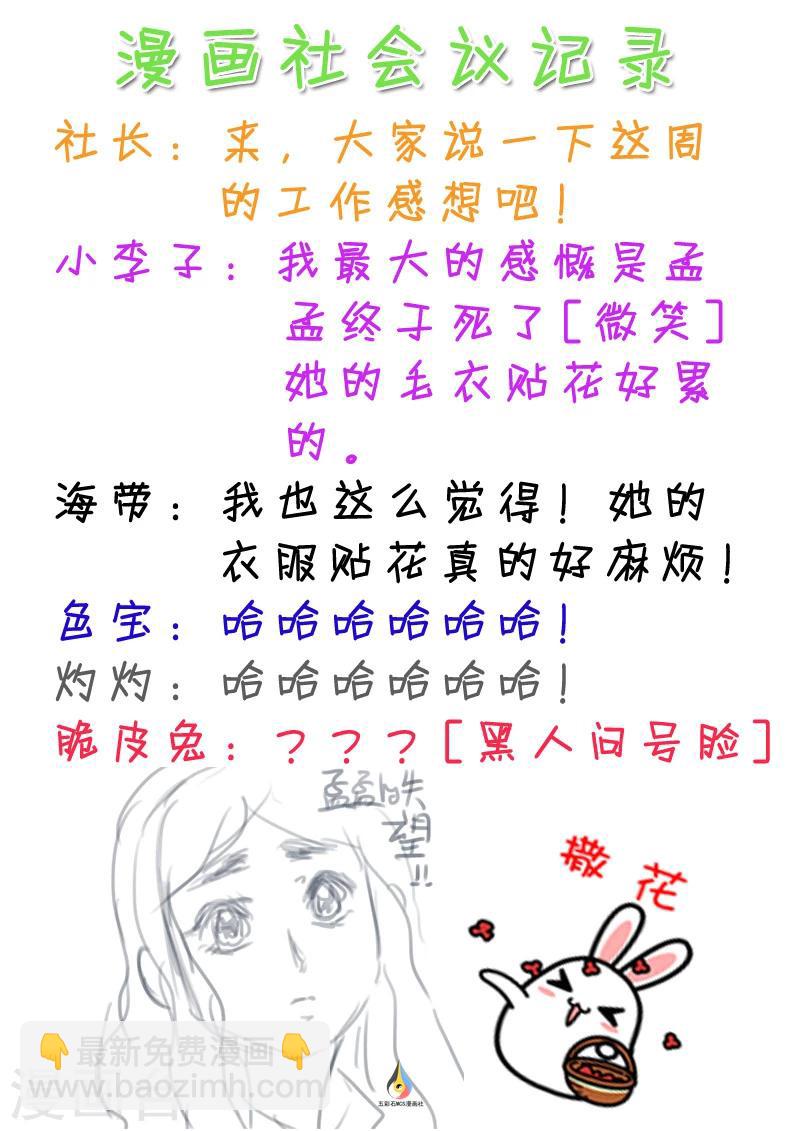 漫画社会议记录
社长：来，大家说一下这周
的工作感想吧！
小李子：我最大的感慨是孟
孟终于死了[微笑]
她的毛衣贴花好累
的。
海带：我也这么觉得！她的
衣服贴花真的好麻烦！
色宝：哈哈哈哈哈哈！
灼灼：哈哈哈哈哈哈！
脆皮兔：？？？[黑人问号脸]
孟孟失
望
!!
撒花
👇最新免费漫画👇
www.baozimh.com
五彩石MCS漫画社